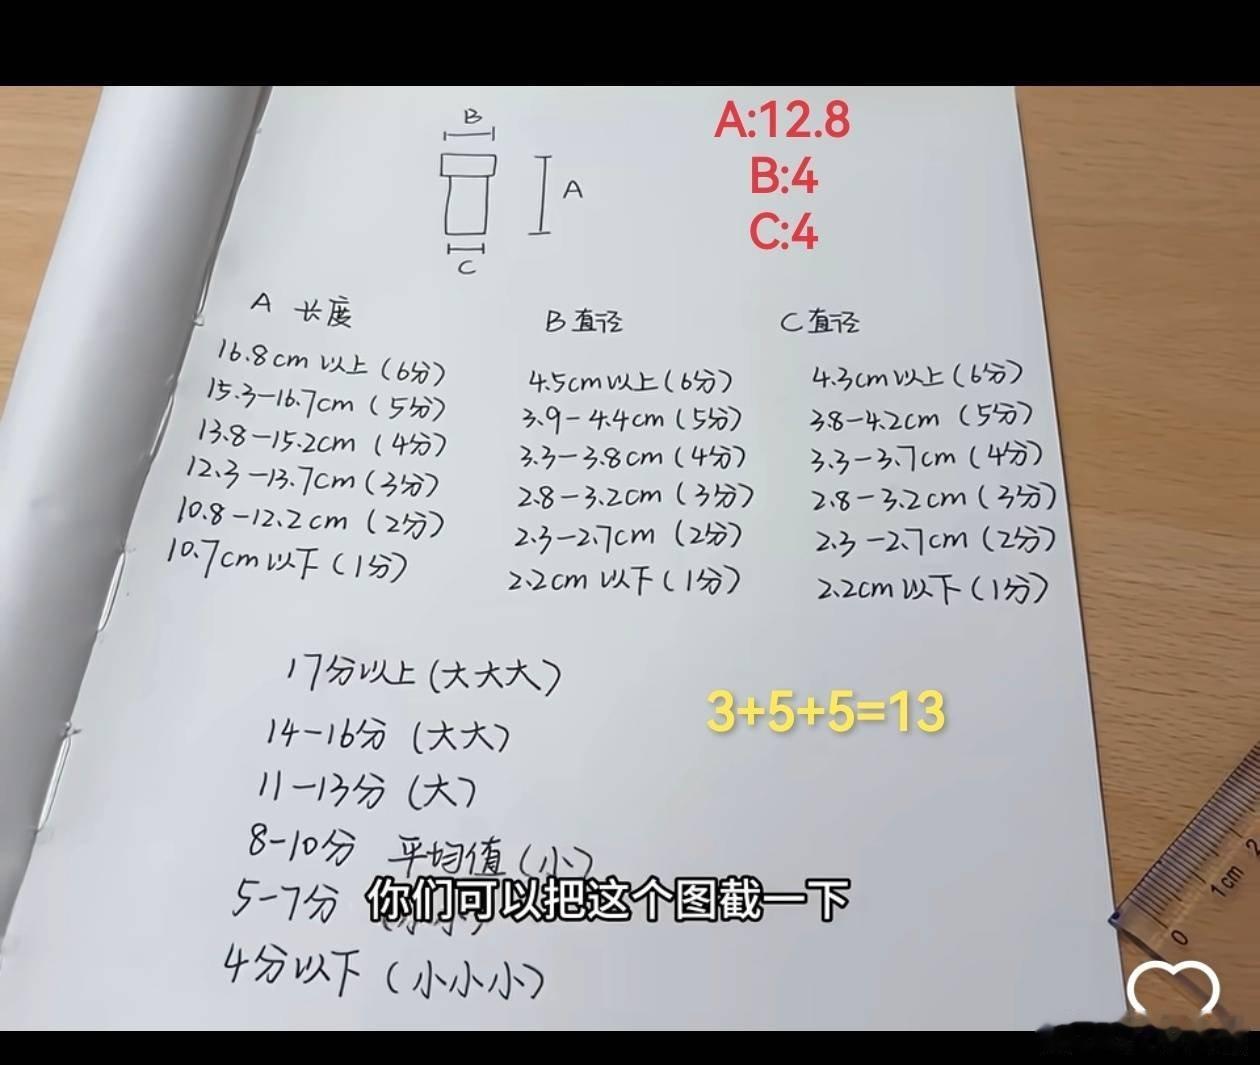 B
A:12.8
B:4
C:4
A
C
A 长度
B直径
C直径
16.8cm以上(6分)
15.3-16.7cm(5分)
13.8-15.2cm(4分)
12.3-13.7cm(3分)
10.8-12.2cm(2分)
10.7cm以下(1分)
4.5cm以上(6分)
3.9-4.4cm(5分)
3.3-3.8cm(4分)
2.8-3.2cm(3分)
2.3-2.7cm(2分)
2.2cm以下(1分)
4.3cm以上(6分)
3.8-4.2cm(5分)
3.3-3.7cm(4分)
2.8-3.2cm(3分)
2.3-2.7cm(2分)
2.2cm以下(1分)
17分以上(大大大)
14-16分(大大)
11-13分(大)
3+5+5=13
8-10分 平均值(小)
5-7分
你们可以把这个图截一下
4分以下(小小小)
0
1cm
2